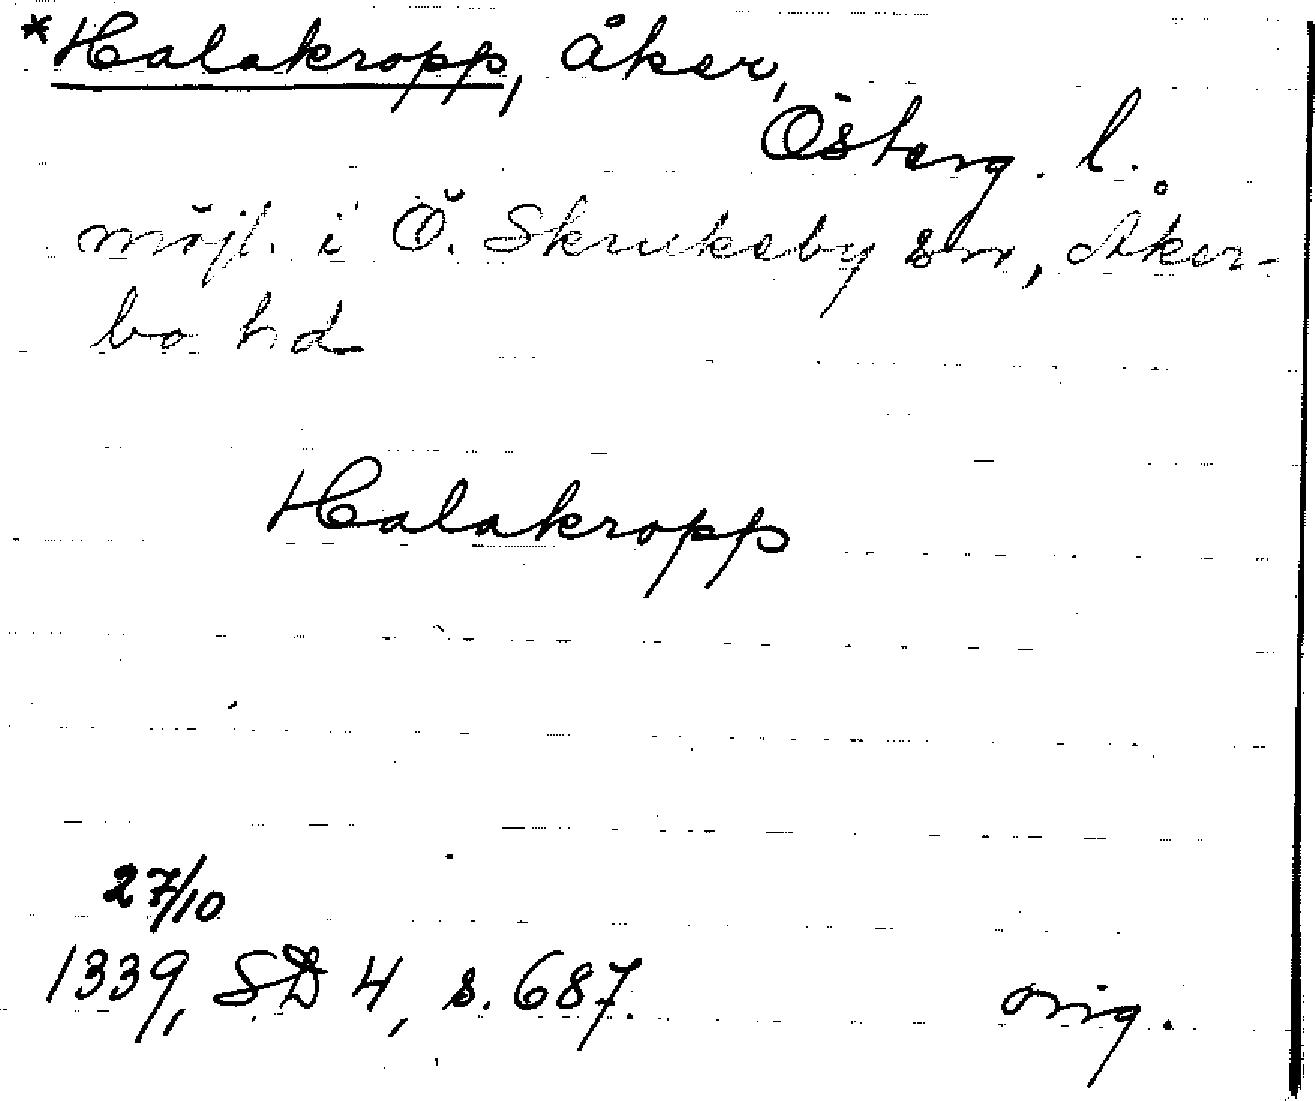 *Halakropp, åker,
Österg. l.
möjl. i Ö. Skrukeby sn, Åker-
bo hd
Halakropp
27/10
1339, SD 4, s. 687.
orig.